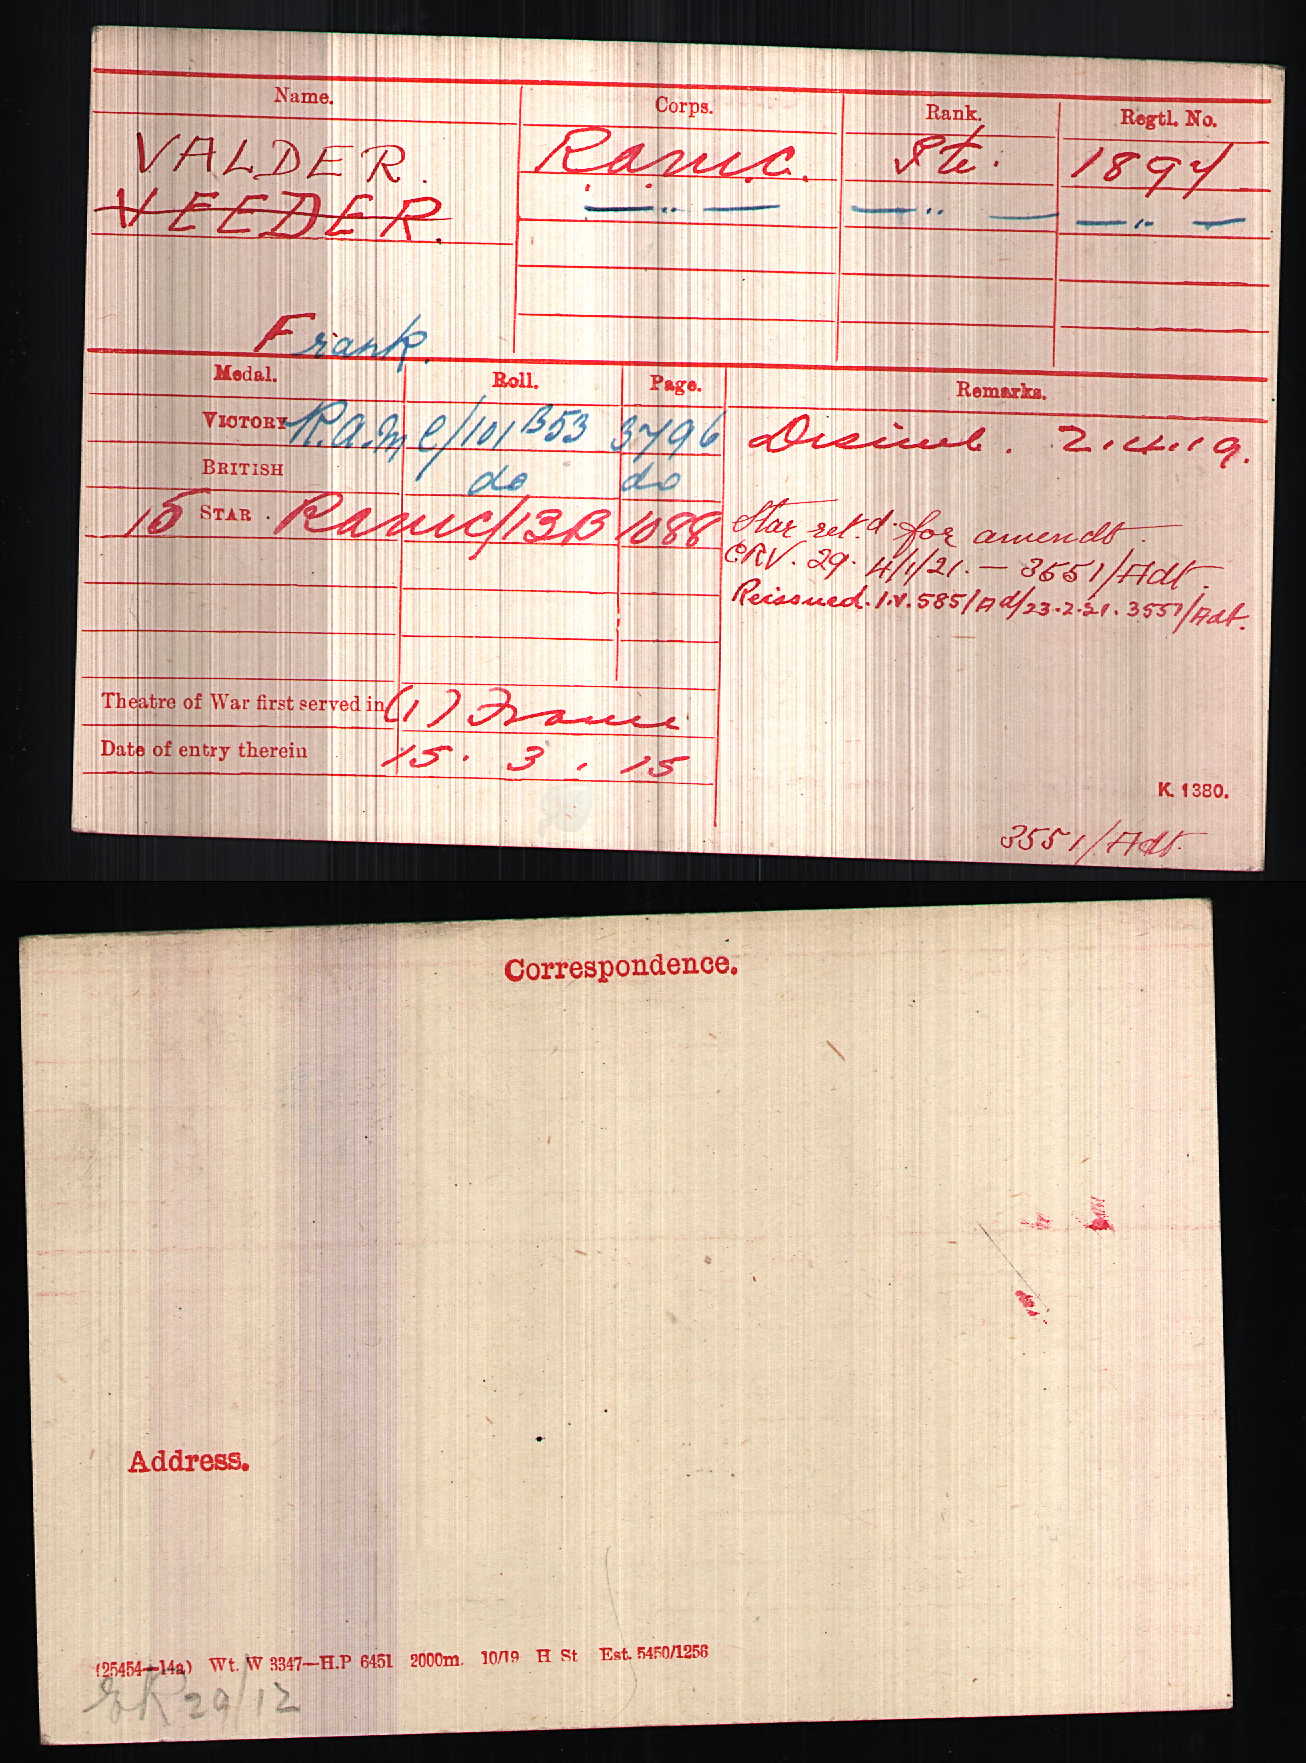 Name. Corps. Rank. Regtl. No.
VALDER. R.A.M.C. Pte. 1897
VEEDER. —"— —"— —"—
Frank.
Medal. Roll. Page. Remarks.
VICTORY R.A.M.C/101 B53 3796 Disemb. 2.4.19.
BRITISH do do
15 STAR. RAMC/13B 1088 Star ret.d. for amendt
CRV. 29. 4/1/21. — 3551/Adt.
Reissued. I.V. 585/Ad/23.2.21. 3551/Adt.
Theatre of War first served in (1) France
Date of entry therein 15. 3. 15
K. 1380.
3551/Adt.
Correspondence.
Address.
(25454—14a) Wt. W 3347—H.P 6451 2000m. 10/19 H St Est. 5450/1256
29/12